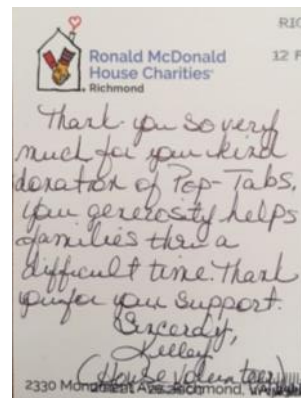 RIC
12 F
Ronald McDonald
House Charities®
Richmond
Thank you so very
much for your kind
donation of Pop-Tabs,
your generosity helps
families thru a
difficult time. Thank
you for your support.
Sincerely,
Kelley
(House Volunteer)
2330 Monument Ave. Richmond,